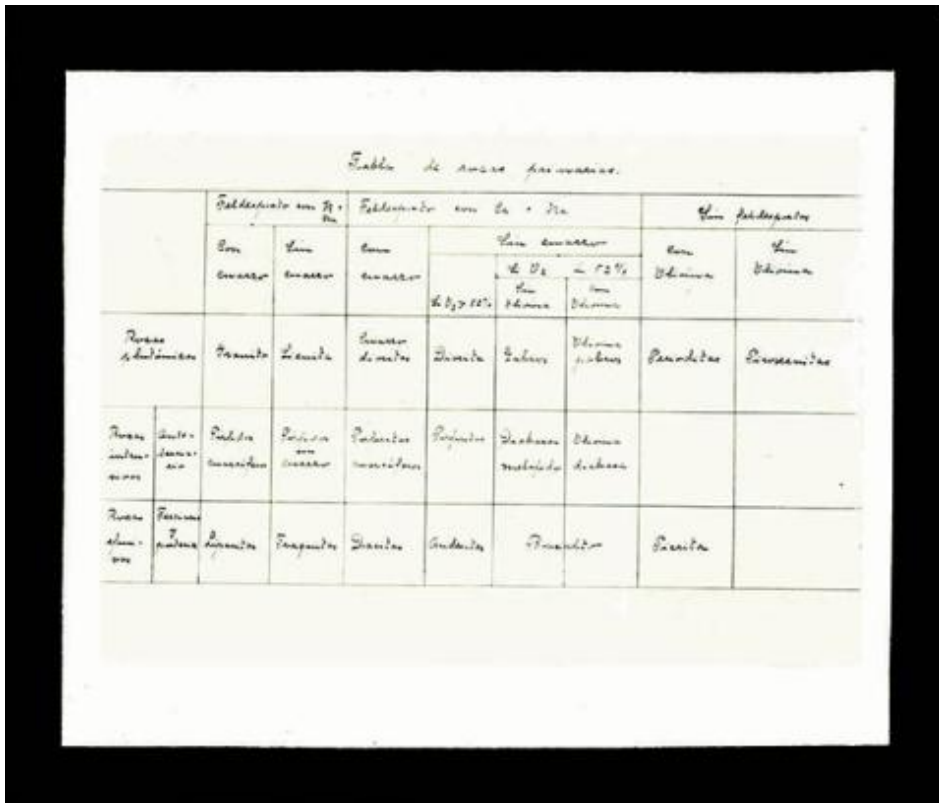 Tabla de rocas primarias.
Feldespato con K + Na
Feldespato con Ca + Na
Sin feldespatos
Con cuarzo
Sin cuarzo
Con cuarzo
Sin cuarzo
con Olivina
Sin Olivina
Si O₂ < 52%
Si O₂ > 52%
Sin Olivina
con Olivina
Rocas plutónicas
Granito
Sienita
Cuarzo diorita
Diorita
Gabros
Olivina gabros
Peridotitas
Piroxenitas
Rocas intrusivas
Pórfido cuarcífero
Porfiritas cuarcíferas
Porfiritas
Diabasa
Olivina diabasa
Rocas efusivas
Liparitas
Traquitas
Dacitas
Andesitas
Basalto
Picrita